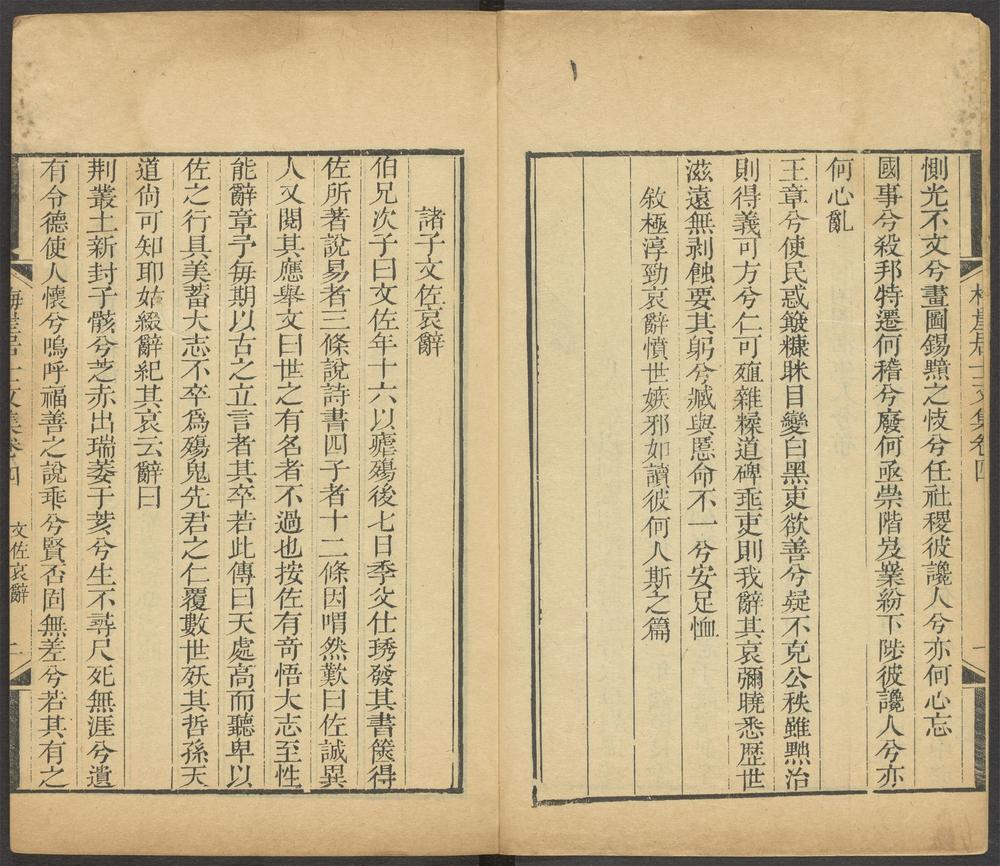 梅崖居士文集卷四
一
惻光不文兮畫圖錫黯之忮兮任社稷彼讒人兮亦何心忘
國事兮殺邦特遷何稽兮廢何亟祟階岌嶪紛下陟彼讒人兮亦
何心亂
王章兮使民惑簸糠眯目變白黑吏欲善兮疑不克公秩雖黜治
則得義可方兮仁可殖雜糅道碑亟吏則我辭其哀彌曉悉歷世
滋遠無剥蝕要其躬兮臧與慝命不一兮安足恤
敘極淳勁哀辭憤世嫉邪如讀彼何人斯之篇
諸子文佐哀辭
伯兄次子曰文佐年十六以瘧殤後七日季父仕琇發其書篋得
佐所著說易者三條說詩書四子者十二條因喟然歎曰佐誠異
人又閱其應舉文曰世之有名者不過也按佐有奇悟大志至性
能辭章予每期以古之立言者其卒若此傳曰天處高而聽卑以
佐之行具美蓄大志不卒為殤鬼先君之仁覆數世殀其哲孫天
道尙可知耶姑綴辭紀其哀云辭曰
荆叢土新封子骸兮芝赤出瑞萎于荄兮生不尋尺死無涯兮遺
有令德使人懷兮嗚呼福善之說乖兮賢否固無差兮若其有之
梅崖居士文集卷四
文佐哀辭
二